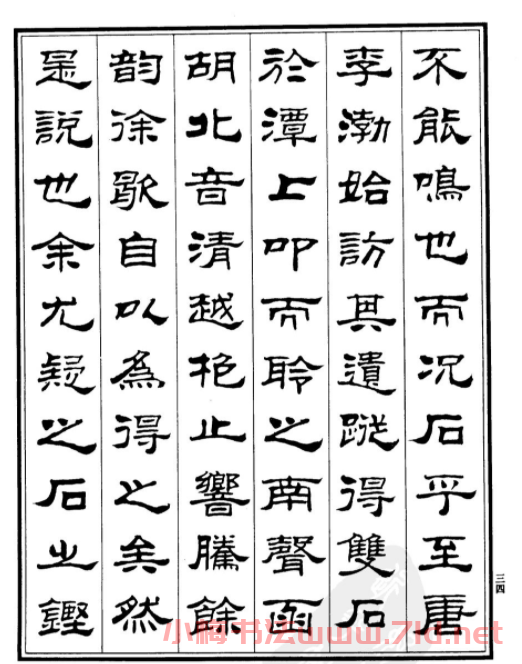 不能鳴也而况石乎至唐
李渤始訪其遺蹤得雙石
於潭上叩而聆之南聲函
胡北音清越枹止響騰餘
韵徐歇自以為得之矣然
是說也余尤疑之石之鏗
三四
小梅书法www.7ld.net